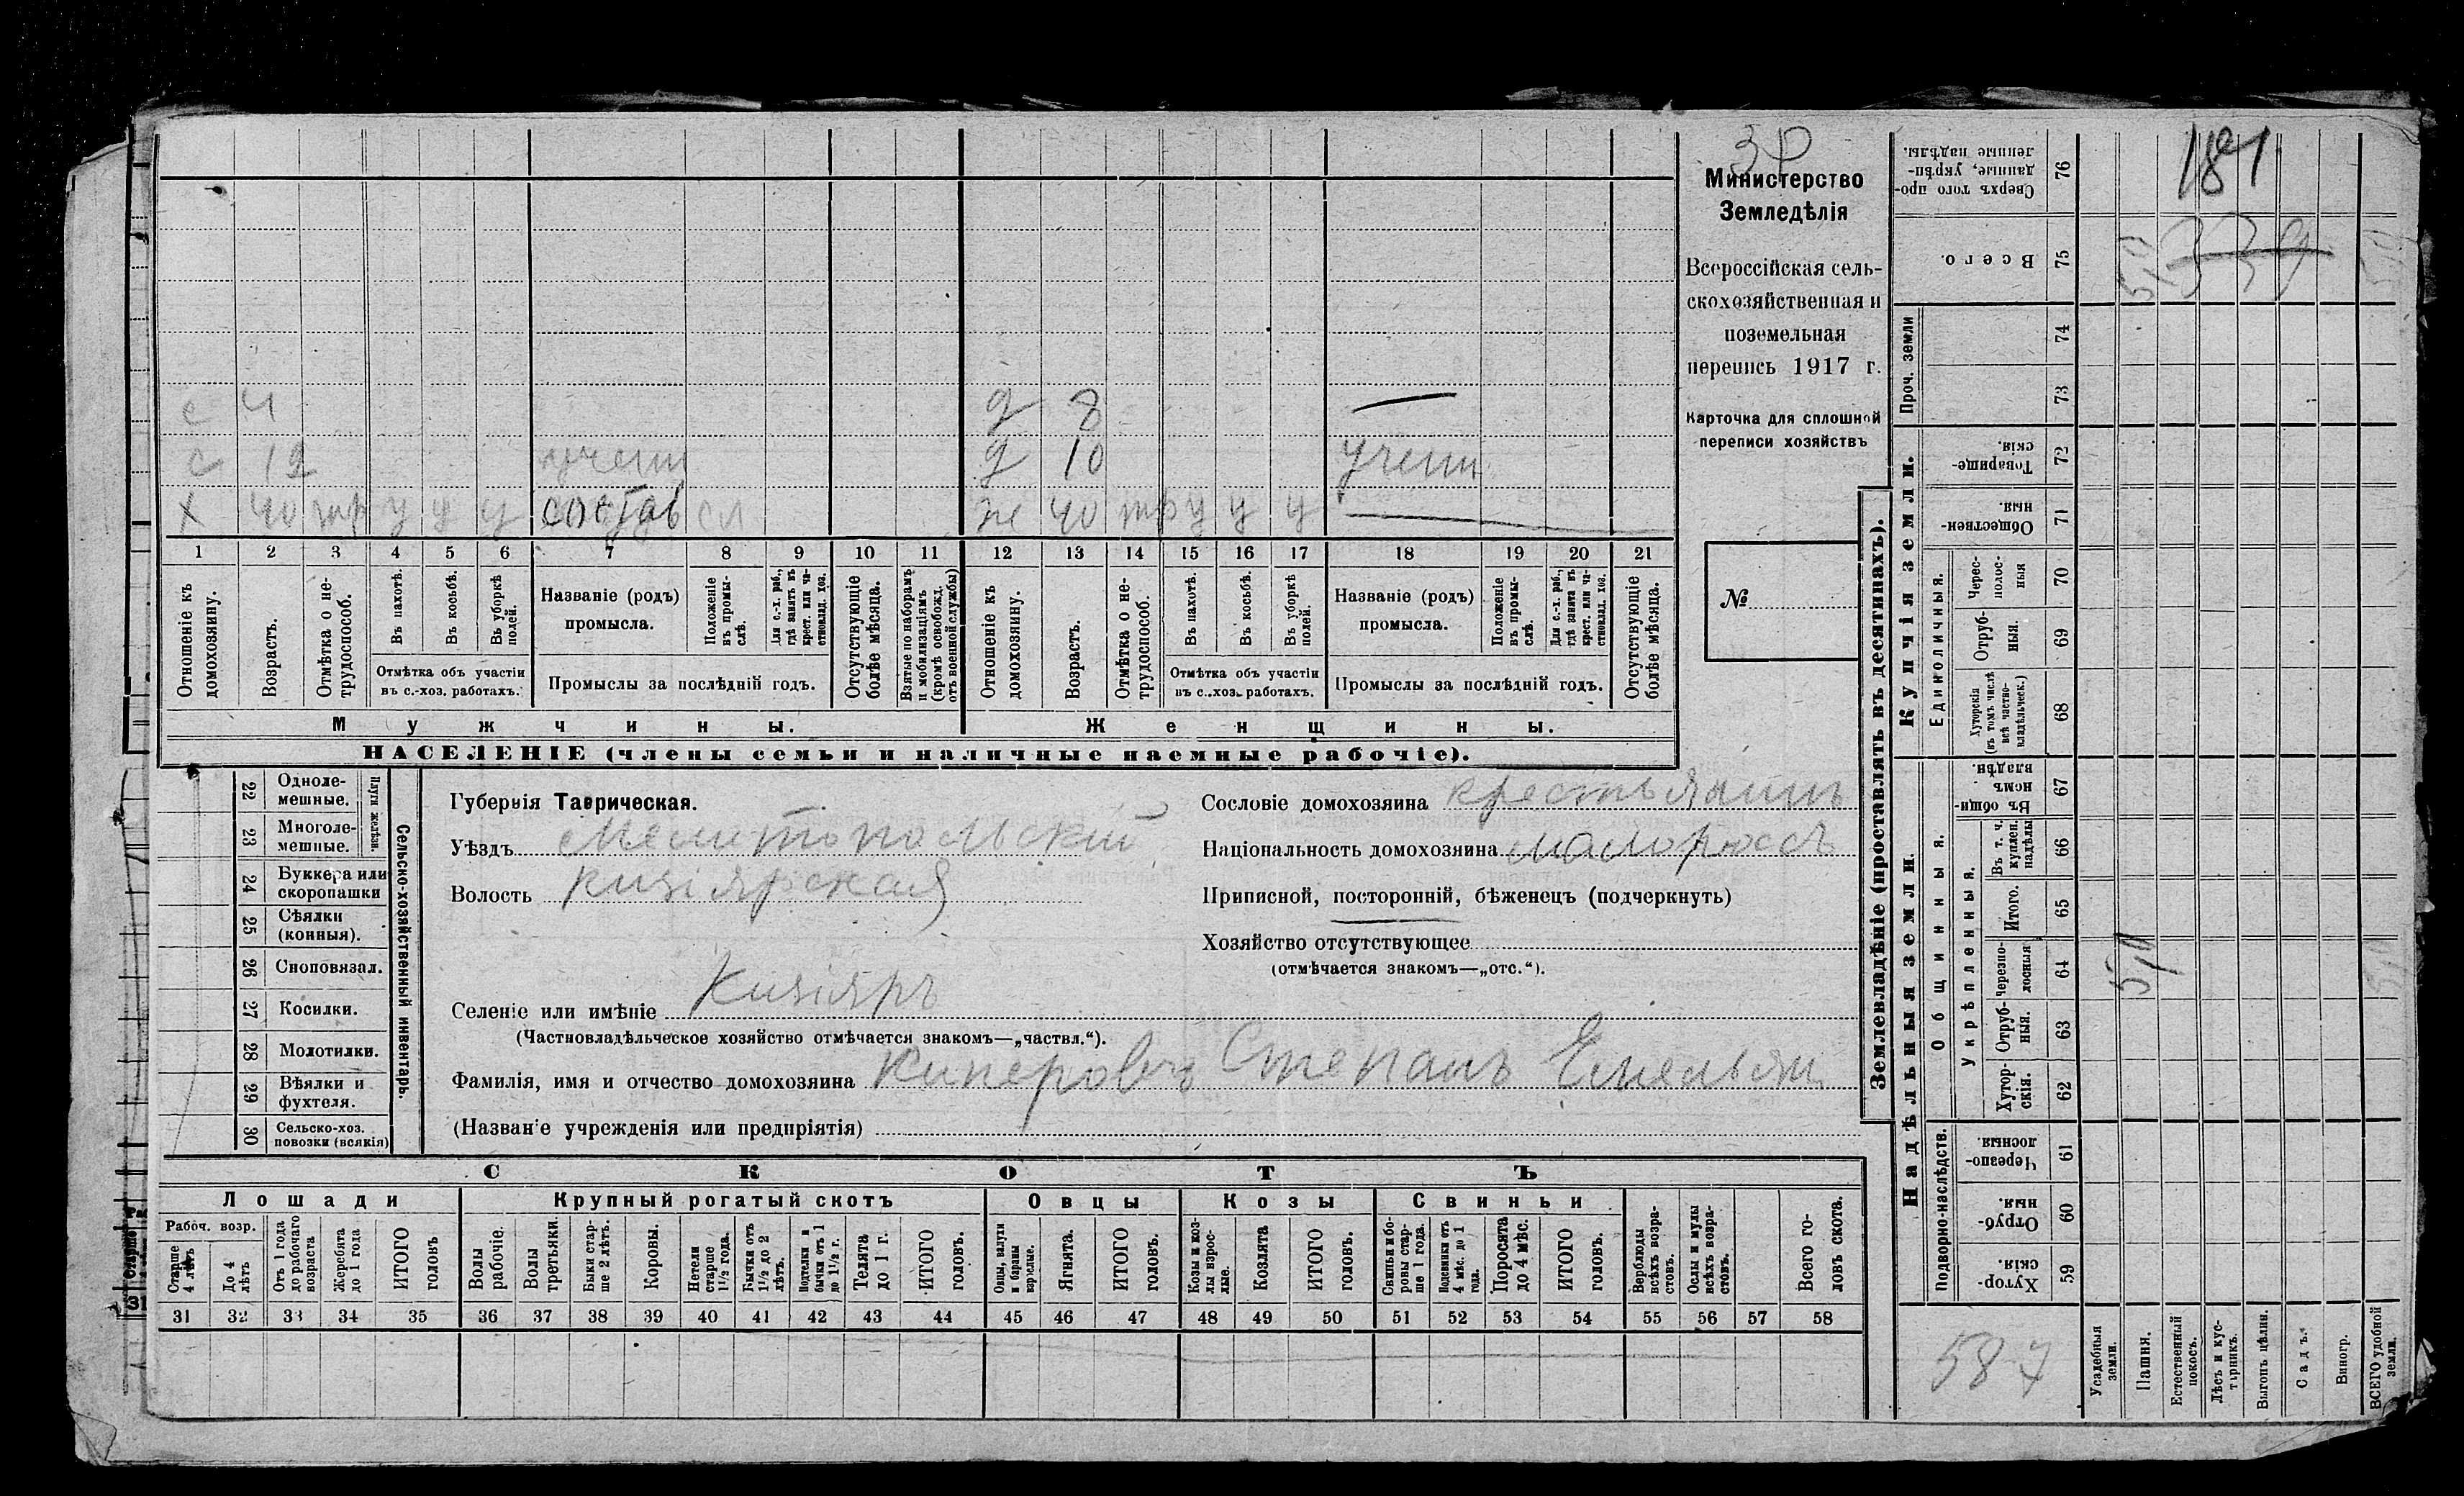 Министерство
Земледѣлія
Всероссійская сель-
скохозяйственная и
поземельная
перепись 1917 г.
Карточка для сплошной
переписи хозяйствъ
№
с 4 д 8 —
с 12 учени д 10 учени
х 40 тр у у у состав сл ж 40 тр у у у —
1 2 3 4 5 6 7 8 9 10 11 12 13 14 15 16 17 18 19 20 21
Отношеніе къ домохозяину.
Возрастъ.
Отмѣтка о не-трудоспособ.
Въ пахотѣ.
Въ косьбѣ.
Въ уборкѣ полей.
Отмѣтка объ участіи
въ с.-хоз. работахъ.
Названіе (родъ)
промысла.
Положеніе въ промы-слѣ.
Для с.-х. раб., гдѣ занятъ въ крест. или ча-стновлад. хоз.
Промыслы за послѣдній годъ.
Отсутствующіе болѣе мѣсяца.
Взятые по наборамъ и мобилизаціямъ (кромѣ освобожд. отъ военной службы)
Отношеніе къ домохозяину.
Возрастъ.
Отмѣтка о не-трудоспособ.
Въ пахотѣ.
Въ косьбѣ.
Въ уборкѣ полей.
Отмѣтка объ участіи
въ с.-хоз. работахъ.
Названіе (родъ)
промысла.
Положеніе въ промы-слѣ.
Для с.-х. раб., гдѣ занята въ крест. или ча-стновлад. хоз.
Промыслы за послѣдній годъ.
Отсутствующіе болѣе мѣсяца.
Мужчины. Женщины.
НАСЕЛЕНІЕ (члены семьи и наличные наемные рабочіе).
Сельско-хозяйственный инвентарь.
Плуги желѣзн.
22 Одноле-мешные.
23 Многоле-мешные.
24 Буккера или скоропашки
25 Сѣялки (конныя).
26 Сноповязал.
27 Косилки.
28 Молотилки.
29 Вѣялки и фухтеля.
30 Сельско-хоз. повозки (всякія)
Губернія Таврическая.
Уѣздъ Мелитопольскій
Волость Кизіярская
Селеніе или имѣніе Кизіяръ
(Частновладѣльческое хозяйство отмѣчается знакомъ—„частвл.“).
Фамилія, имя и отчество домохозяина Киперовъ Степанъ Емельян
(Названіе учрежденія или предпріятія)
Сословіе домохозяина крестьянинъ
Національность домохозяина малороссъ
Приписной, посторонній, бѣженецъ (подчеркнуть)
Хозяйство отсутствующее
(отмѣчается знакомъ—„отс.“).
СКОТЪ
Лошади Крупный рогатый скотъ Овцы Козы Свиньи
Рабоч. возр.
Старше 4 лѣтъ
До 4 лѣтъ
Отъ 1 года до рабочаго возраста
Жеребята до 1 года
ИТОГО головъ
Волы рабочіе.
Волы третьяки.
Быки стар-ше 2 лѣтъ.
Коровы.
Нетели старше 1½ года.
Бычки отъ 1½ до 2 лѣтъ.
Подтелки и бычки отъ 1 до 1½ г.
Телята до 1 г.
ИТОГО головъ.
Овцы, валухи и бараны взрослые.
Ягнята.
ИТОГО головъ.
Козы и коз-лы взрос-лые.
Козлята
ИТОГО головъ.
Свиньи и бо-ровы стар-ше 1 года.
Подсвинки отъ 4 мѣс. до 1 года.
Поросята до 4 мѣс.
ИТОГО головъ.
Верблюды всѣхъ возра-стовъ.
Ослы и мулы всѣхъ возра-стовъ.
Всего го-ловъ скота.
31 32 33 34 35 36 37 38 39 40 41 42 43 44 45 46 47 48 49 50 51 52 53 54 55 56 57 58
Землевладѣніе (проставлять въ десятинахъ).
Купчія земли.
Надѣльныя земли.
Сверхъ того про-данные, укрѣп-ленные надѣлы. 76
Всего. 75
Проч. земли 74 73
Товарище-скія. 72
Обществен-ныя. 71
Единоличныя.
Черес-полос-ныя 70
Отруб-ныя. 69
Хуторскія (въ томъ числѣ всѣ частно-владѣльческ.) 68
Общинныя.
Въ общи-номъ владѣн. 67
Укрѣпленныя.
Въ т. ч. куплен. надѣлы 66
Итого. 65
Черезпо-лосныя 64
Отруб-ныя. 63
Хутор-скія. 62
Подворно-наслѣдств.
Черезпо-лосныя 61
Отруб-ныя. 60
Хутор-скія. 59
Усадебныя земли.
Пашня.
Естественный покосъ.
Лѣсъ и кус-тарникъ.
Выгонъ цѣлин.
Садъ.
Виногр.
ВСЕГО удобной земли.
339
587